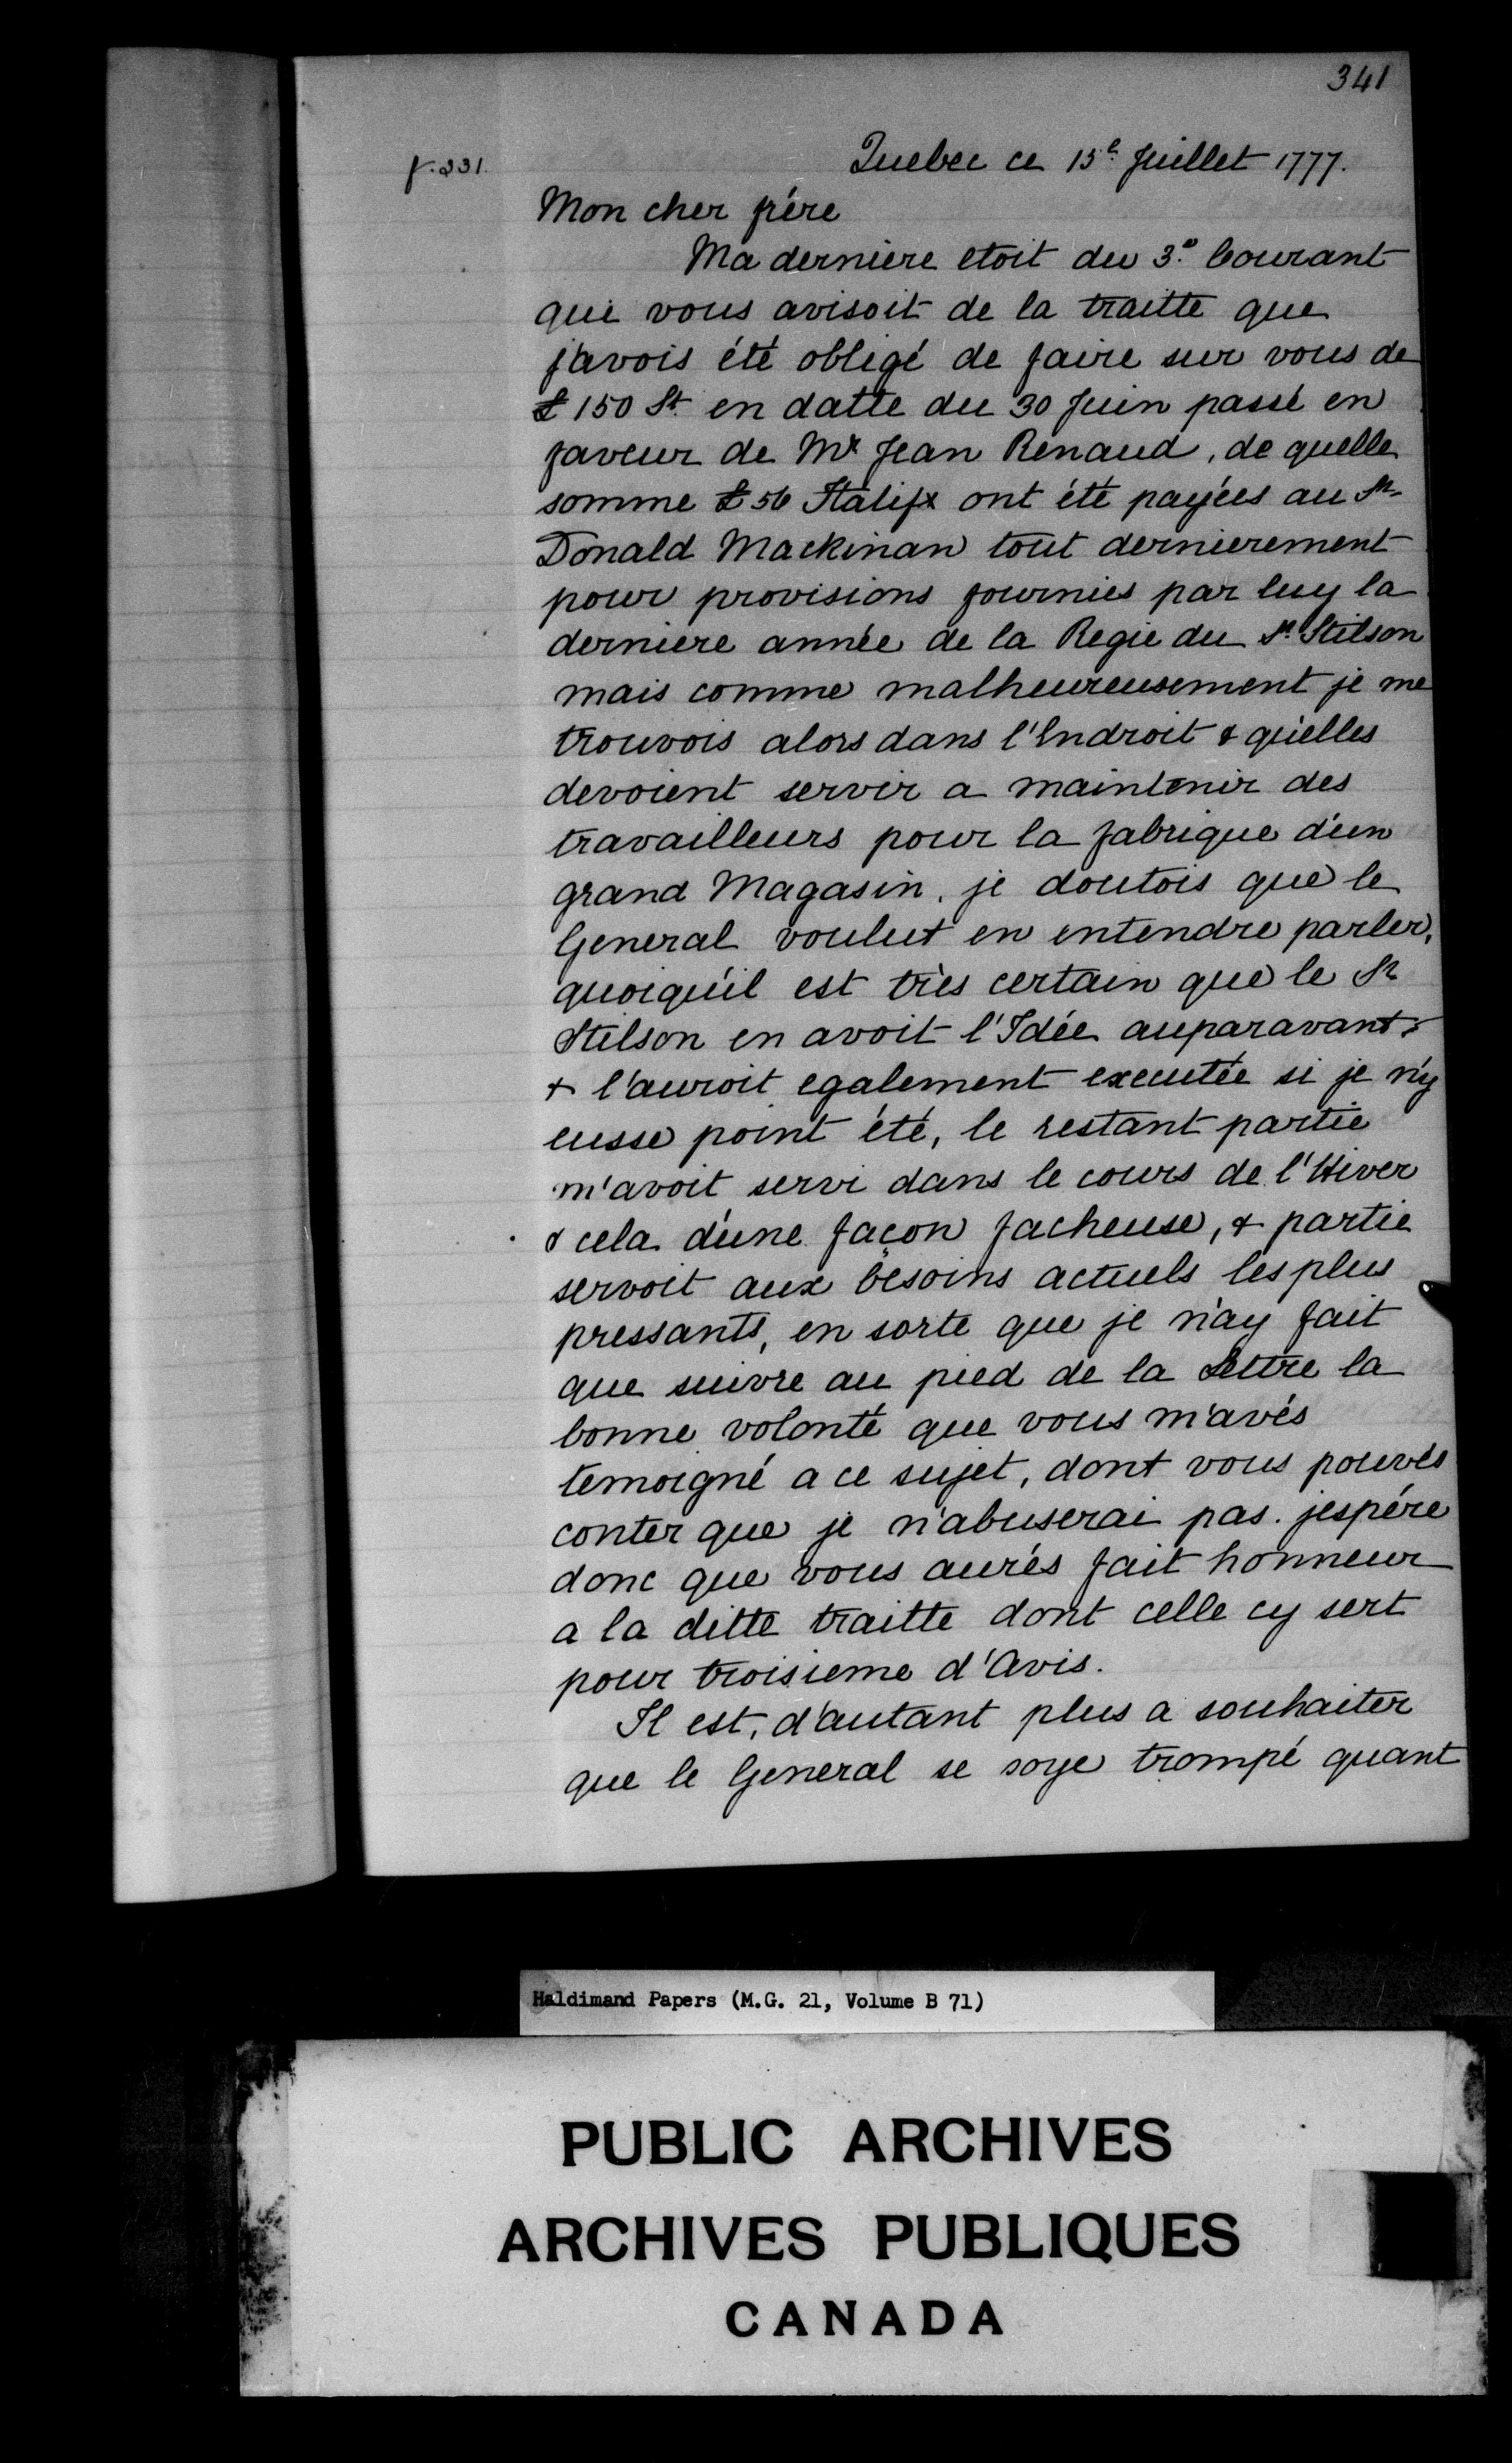 341
f. 231.
Quebec ce 15e Juillet 1777.
Mon cher frére
Ma derniere etoit du 3e Courant
qui vous avisoit de la traitte que
j'avois été obligé de faire sur vous de
£ 150 St. en datte du 30 Juin passé en
faveur de Mr Jean Renaud, de quelle
somme £ 56 Halifx ont été payées au Sr
Donald Mackinan tout dernierement
pour provisions fournies par luy la
derniere année de la Regie du Sr. Stilson
mais comme malheureusement je me
trouvois alors dans l'Endroit & qu'elles
devoient servir a maintenir des
travailleurs pour la fabrique d'un
grand Magasin, je doutois que le
General voulut en entendre parler,
quoiqu'il est très certain que le Sr
Stilson en avoit l'Idée auparavant
& l'auroit egalement executée si je n'y
eusse point été, le restant partie
m'avoit servi dans le cours de l'Hiver
& cela d'une façon facheuse, & partie
servoit aux besoins actuels les plus
pressants, en sorte que je n'ay fait
que suivre au pied de la Lettre la
bonne volonté que vous m'avés
temoigné a ce sujet, dont vous pouvés
conter que je n'abuserai pas. jespére
donc que vous aurés fait honneur
a la ditte traitte dont celle cy sert
pour troisieme d'Avis.
Il est, d'autant plus a souhaiter
que le General se soye trompé quant
Haldimand Papers (M.G. 21, Volume B 71)
PUBLIC ARCHIVES
ARCHIVES PUBLIQUES
CANADA